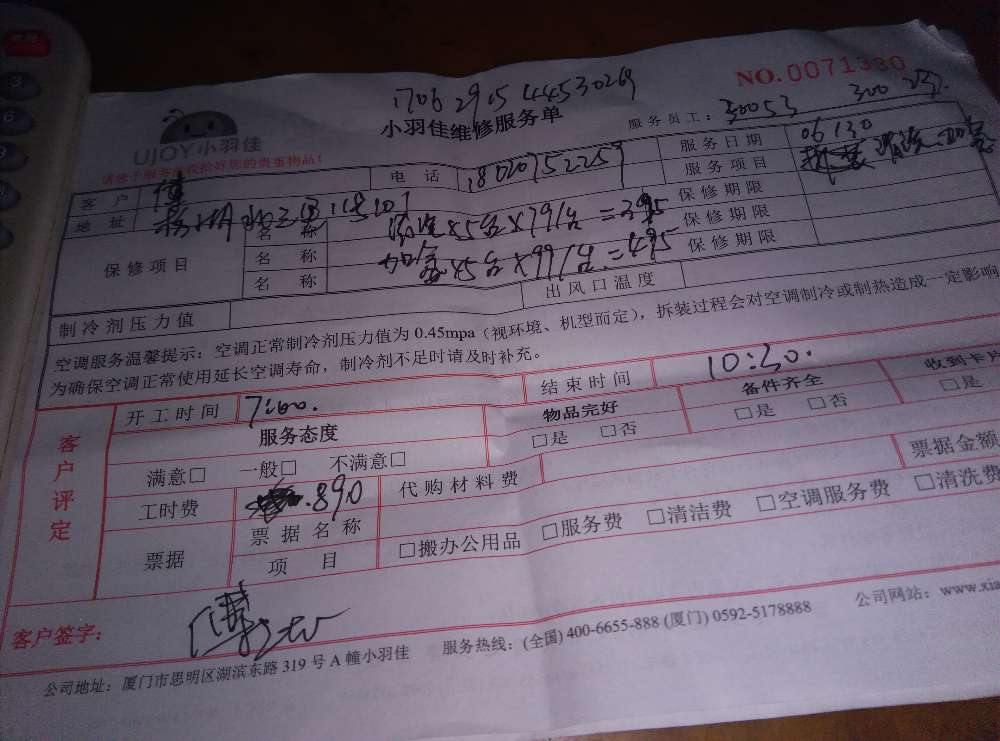 NO.0071330
1706 2915 44530269
小羽佳维修服务单
服务员工: 30053 300
UJOY小羽佳
请您于服务前收拾好您的贵重物品!
客户 傅 电话 18020752257 服务日期 06/30
地址 118 107 服务项目 清洗 加氨
保修项目 名称 清洗X5台X79/台=395 保修期限
名称 加氨X5台X99/台=495 保修期限
名称 保修期限
制冷剂压力值 出风口温度
空调服务温馨提示:空调正常制冷剂压力值为0.45mpa(视环境、机型而定),拆装过程会对空调制冷或制热造成一定影响
为确保空调正常使用延长空调寿命,制冷剂不足时请及时补充。
客户评定 开工时间 7:00. 结束时间 10:30.
服务态度 物品完好 备件齐全 收到卡片
满意□ 一般□ 不满意□ □是 □否 □是 □否 □是
工时费 890 代购材料费 票据金额
票据 票据名称 □搬办公用品 □服务费 □清洁费 □空调服务费 □清洗费
项目
客户签字: 傅
公司地址:厦门市思明区湖滨东路319号A幢小羽佳 服务热线:(全国)400-6655-888 (厦门)0592-5178888 公司网站:www.xia